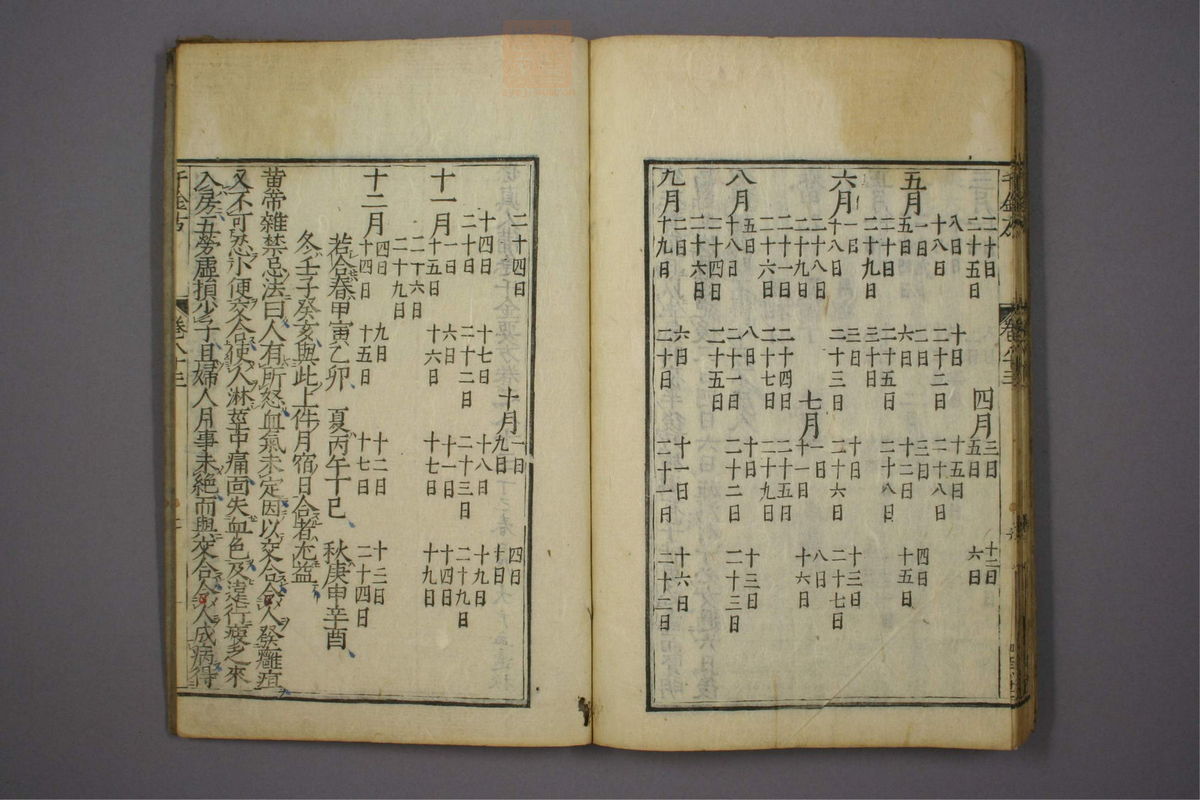 千金方 卷八十三
二十日 四月 三日
二十五日 五日 六日
八日 十日 十五日
十八日 二十二日 二十八日
五月 一日 二日 三日 四日
五日 六日 十二日 十五日
二十日 二十五日 二十八日
二十九日 三十日
六月 一日 三日 十日 十三日
十八日 二十三日 二十六日 二十七日
二十八日 七月 一日 八日
二十九日 十一日 十六日
二十一日 二十四日 二十五日
二十六日 二十七日 二十九日
八月 五日 八日 十日 十三日
十八日 二十一日 二十二日 二十三日
二十四日 二十五日
二十六日
九月 二日 六日 十日 十六日
十九日 二十日 二十一日 二十二日
二十四日 十月 一日 四日
九日 十日
十四日 十七日 十八日 十九日
二十日 二十二日 二十三日 二十九日
十一月 一日 六日 十一日 十四日
十五日 十六日 十七日 十九日
二十六日
二十九日
十二月 四日 九日 十二日 十三日
十四日 十五日 十七日 二十四日
若合春甲寅乙卯、夏丙午丁巳、秋庚申辛酉、
冬壬子癸亥與此上件月宿日合者尤益
黄帝雜禁忌法曰人有所怒血氣未定因以交合令人發癰疽
又不可忍小便交合使人淋莖中痛面失血色及遠行疲乏來
入房五勞虛損少子且婦人月事未絕而與交合令人成病得
千金方 卷八十三